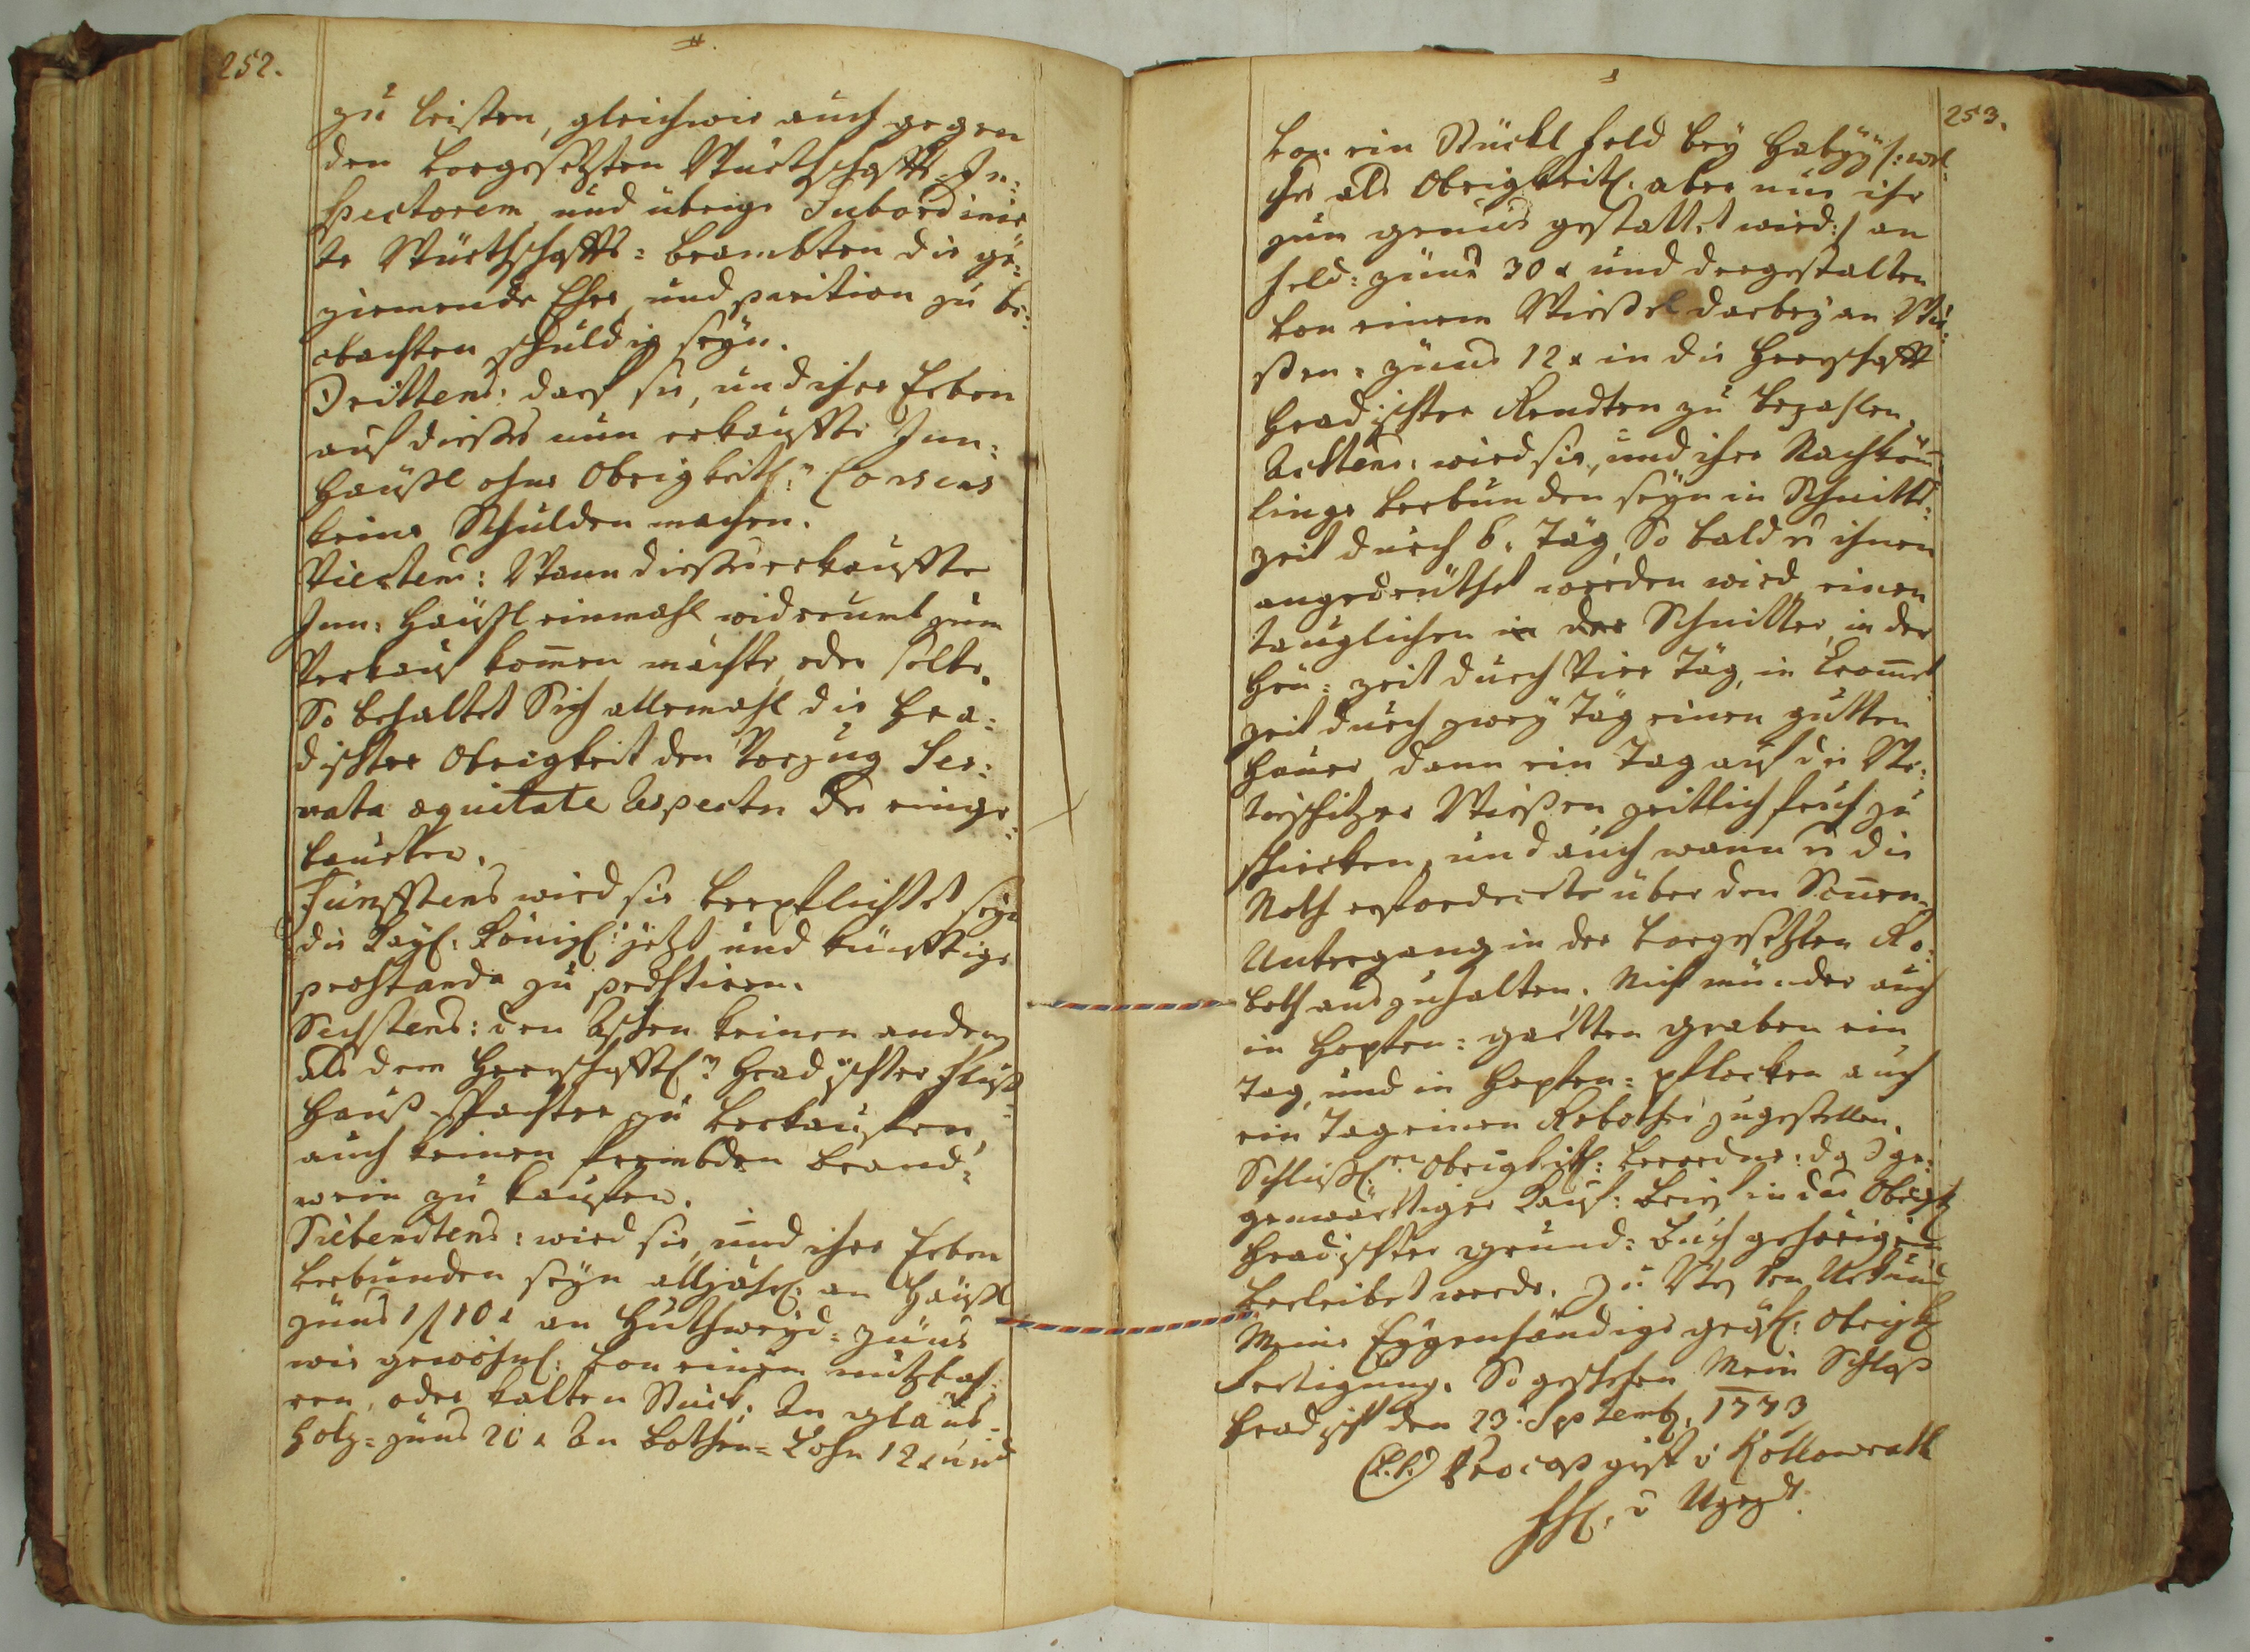 252.
zu leisten, gleichwie auch gegen
den vorgesetzten Würthschaffts-In=
spectorem, und übrige Subordinir
te Würthschaffts=beambten die ge=
ziemende Ehre, und parition zu be=
obachten schuldig seyn.
Drittens: darf sie, und ihre Erben
auf dießes nun erkauffte Inn=
Häußl ohne Obrigkeitl:n Consens
keine Schulden machen.
Viertens: Wann dießes erkauffte
Inn: Häußl einmahl widerumb zum
Verkauf kommen möchte, oder solte,
So behaltet Sich allemahl die Hra=
dischter Obrigkeit den Vorzug Ser=
vata æquitate Respectu der einge=
kauften.
Fünfftens wird sie verpflichtet seyn
die Kay: Königl: jetzt und künfftige
præstanda zu præstiren.
Sechstens: den Aschen keinen andern
als dem Herrschafftl:n Hradischter Fluß=
Hauß-Pachter zu verkaufen,
auch keinen frembden brand=
wein zu kaufen.
Siebendtens: wird sie, und ihre Erben
verbunden seyn alljährl: an Häußl
zünß 1 f 10 x an Huthweyd=zünß
wie gewöhnl: von einem nutzbah=
ren, oder kalten Stück. An glaub=
Holz=zünß 20 x An Bothen=Lohn 12 x und
253.
von ein Stückl Feld bey Habýý /: wel=
che als Obrigkeitl: aber nur ihr
zum genuß gestattet wird :/ an
Feld=zünß 30 x und dergestalten
von einem Wießel darbey an Wie=
ßen=zünß 12 x in die Herrschafft
Hradischter Rendten zu bezahlen.
Achtens: wird sie, und ihre Nachköm
linge verbunden seyn in Schnitts=
zeit durch 6. Täg, So bald es ihnen
angedeuthet werden wird, einen
tauglichen in der Schnitter, in der
Heu=zeit durch Vier Täg, in Krommet
zeit durch zwey Täg einen gutten
Hauer, dann ein Tag auf die
Wießen zeitlich fruh zu
schicken, und auch wann es die
Noth erforderte über den Sonnen
Untergang in der vorgesetzten Ro=
both auszuhalten. Nicht münder auch
in Hopfen=gartten graben ein
Tag, und in Hopfen=pflocken auch
ein Tag einen Robother zugestellen.
Schlüßl:n Obrigkeitl: verordne: daß ge=
genwärttiger Kauf=brief in das Obrigk
Hradischter grund=buch gehörigen
verleibet werde. Zu Weßen Urkund
Meine Eÿgenhändige gräfl: Obrigk
fertigung. So geschehen Mein Schloß
Hradischt den 23: Septemb: 1773
(L.S.) Procop gr: v Kollowrath
v Ugezdt.